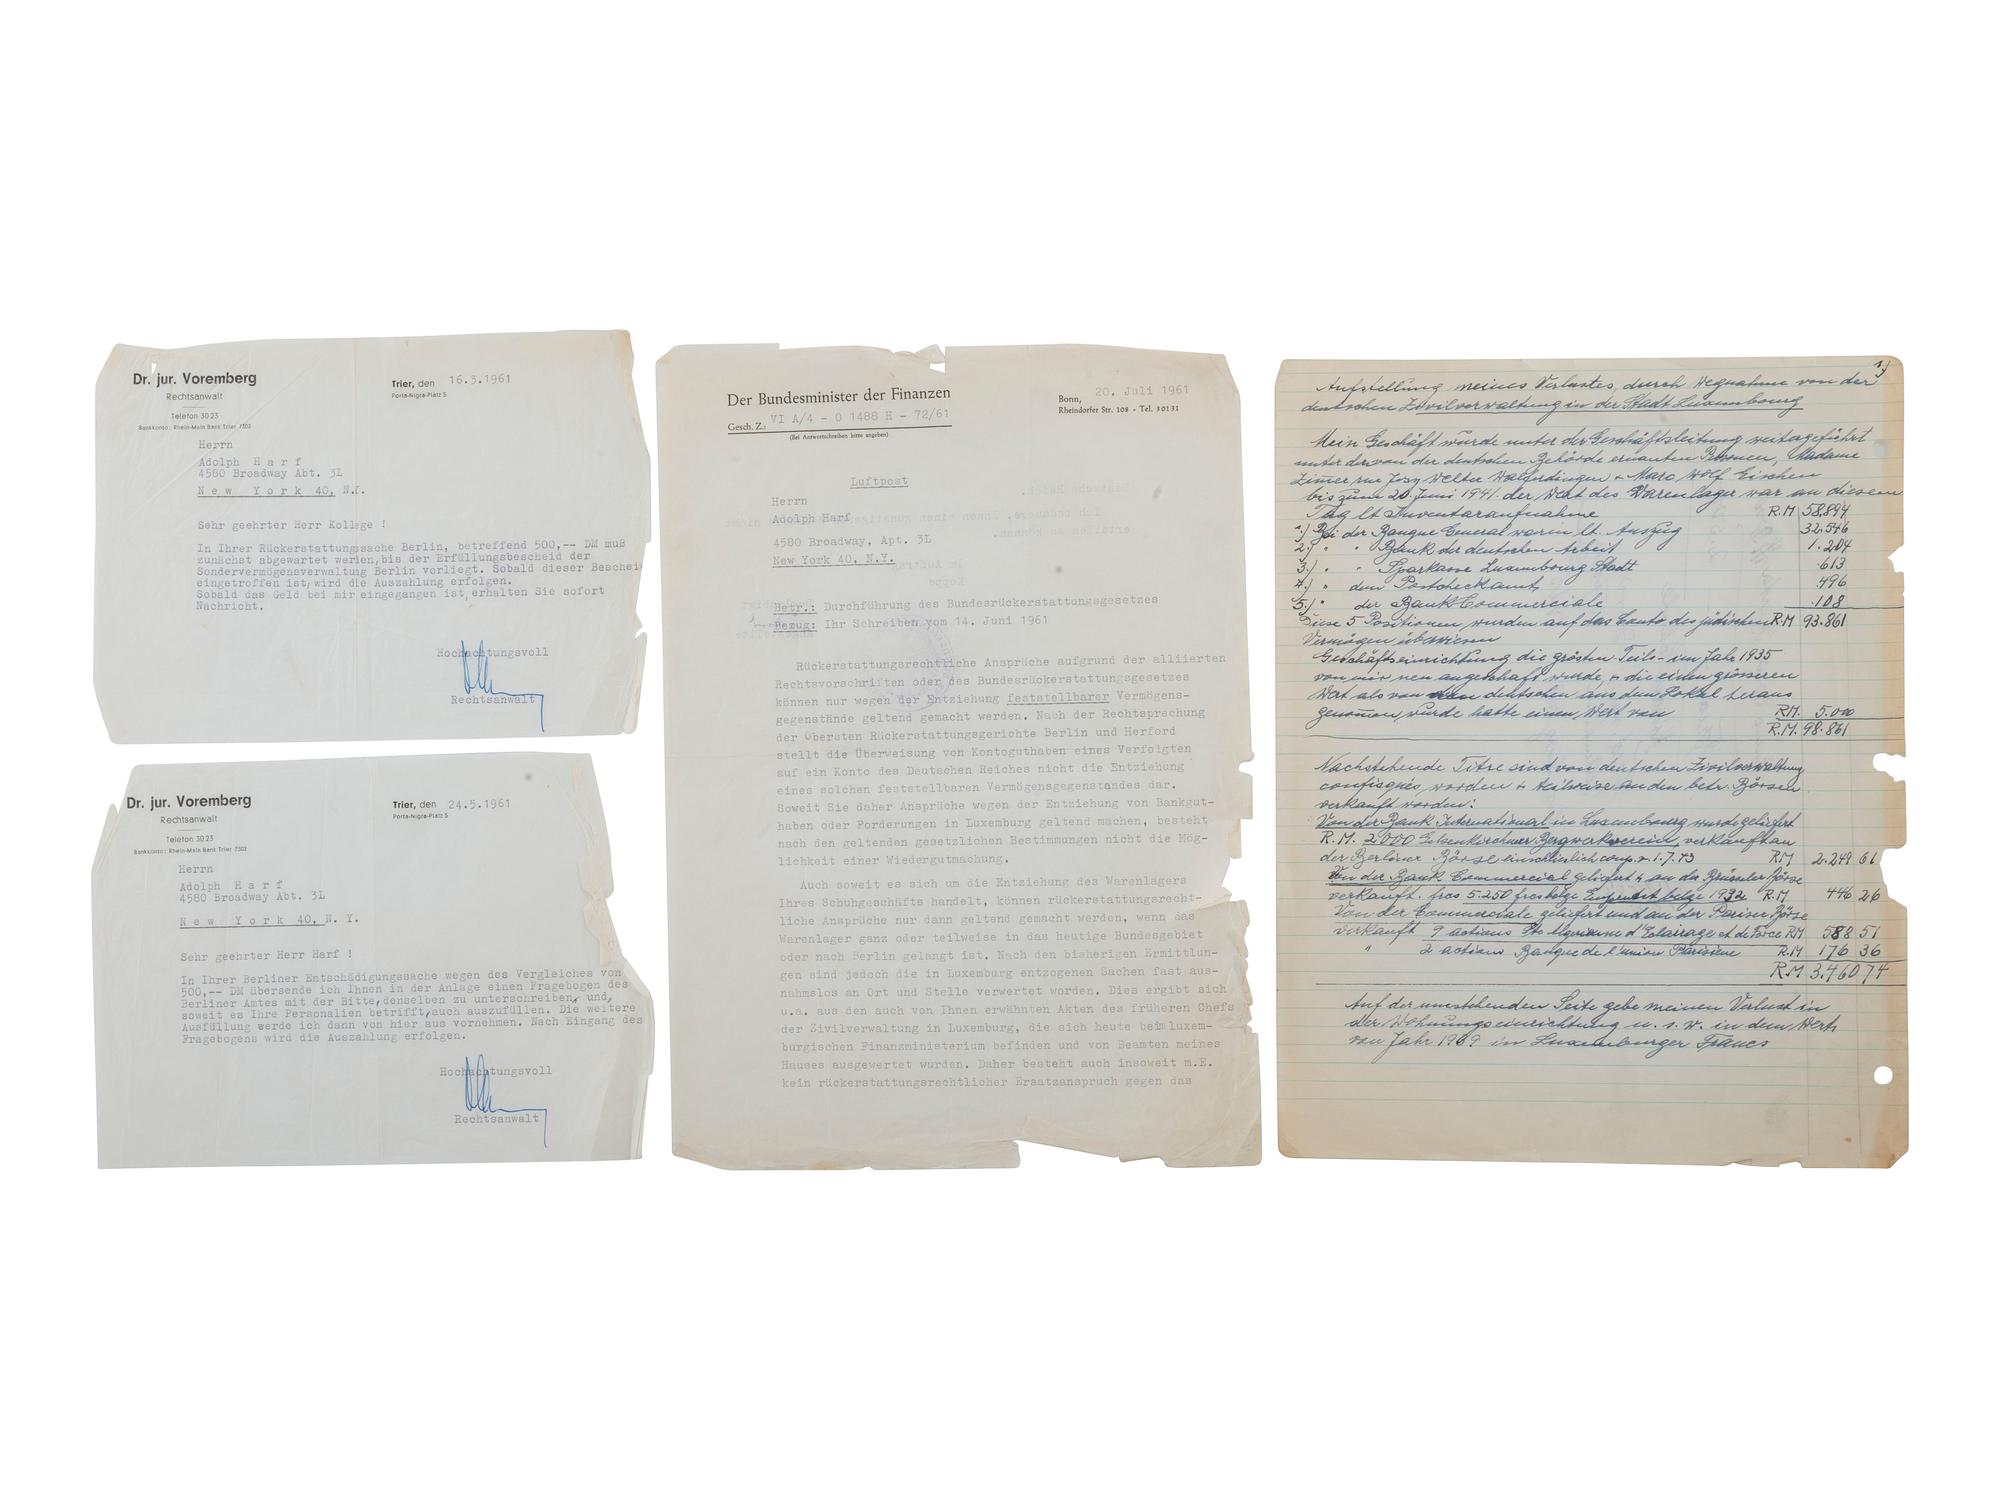 Dr. jur. Voremberg
Rechtsanwalt
Telefon 3023
Bankkonto: Rhein-Main Bank Trier 7302
Trier, den 16.3.1961
Porta-Nigra-Platz 5
Herrn
Adolph H a r f
4580 Broadway Abt. 3L
N e w   Y o r k  40, N.Y.
Sehr geehrter Herr Kollege !
In Ihrer Rückerstattungssache Berlin, betreffend 500,-- DM muß
zunächst abgewartet werden, bis der Erfüllungsbescheid der
Sondervermögensverwaltung Berlin vorliegt. Sobald dieser Beschei
eingetroffen ist, wird die Auszahlung erfolgen.
Sobald das Geld bei mir eingegangen ist, erhalten Sie sofort
Nachricht.
Hochachtungsvoll
Rechtsanwalt
Dr. jur. Voremberg
Rechtsanwalt
Telefon 3023
Bankkonto: Rhein-Main Bank Trier 7302
Trier, den 24.5.1961
Porta-Nigra-Platz 5
Herrn
Adolph H a r f
4580 Broadway Abt. 3L
N e w   Y o r k  40, N. Y.
Sehr geehrter Herr Harf !
In Ihrer Berliner Entschädigungssache wegen des Vergleiches von
500,-- DM übersende ich Ihnen in der Anlage einen Fragebogen des
Berliner Amtes mit der Bitte, denselben zu unterschreiben, und,
soweit es Ihre Personalien betrifft, auch auszufüllen. Die weitere
Ausfüllung werde ich dann von hier aus vornehmen. Nach Eingang des
Fragebogens wird die Auszahlung erfolgen.
Hochachtungsvoll
Rechtsanwalt
Der Bundesminister der Finanzen
Gesch. Z.: VI A/4 - O 1488 H - 72/61
(Bei Antwortschreiben bitte angeben)
Bonn, 20. Juli 1961
Rheindorfer Str. 108 - Tel. 30131
Luftpost
Herrn
Adolph Harf
4580 Broadway, Apt. 3L
New York 40, N.Y.
Betr.: Durchführung des Bundesrückerstattungsgesetzes
Bezug: Ihr Schreiben vom 14. Juni 1961
Rückerstattungsrechtliche Ansprüche aufgrund der alliierten
Rechtsvorschriften oder des Bundesrückerstattungsgesetzes
können nur wegen der Entziehung feststellbarer Vermögens-
gegenstände geltend gemacht werden. Nach der Rechtsprechung
der Obersten Rückerstattungsgerichte Berlin und Herford
stellt die Überweisung von Kontoguthaben eines Verfolgten
auf ein Konto des Deutschen Reiches nicht die Entziehung
eines solchen feststellbaren Vermögensgegenstandes dar.
Soweit Sie daher Ansprüche wegen der Entziehung von Bankgut-
haben oder Forderungen in Luxemburg geltend machen, besteht
nach den geltenden gesetzlichen Bestimmungen nicht die Mög-
lichkeit einer Wiedergutmachung.
Auch soweit es sich um die Entziehung des Warenlagers
Ihres Schuhgeschäfts handelt, können rückerstattungsrecht-
liche Ansprüche nur dann geltend gemacht werden, wenn das
Warenlager ganz oder teilweise in das heutige Bundesgebiet
oder nach Berlin gelangt ist. Nach den bisherigen Ermittlun-
gen sind jedoch die in Luxemburg entzogenen Sachen fast aus-
nahmslos an Ort und Stelle verwertet worden. Dies ergibt sich
u.a. aus den auch von Ihnen erwähnten Akten des früheren Chefs
der Zivilverwaltung in Luxemburg, die sich heute beim luxem-
burgischen Finanzministerium befinden und von Beamten meines
Hauses ausgewertet wurden. Daher besteht auch insoweit m.E.
kein rückerstattungsrechtlicher Ersatzanspruch gegen das
Aufstellung meines Verlustes, durch Wegnahme von der
deutschen Zivilverwaltung in der Stadt Luxembourg
Mein Geschäft wurde unter der Geschäftsleitung weitergeführt
unter den von der deutschen Behörde ernanten Personen, Madame
Zimer rue Josy Welter Walferdingen + Marc Wolf Eischen
bis zum 20. Juni 1941. der Wert des Warenlager war an diesem
Tag lt Inventaraufnahme R.M 58.894
1.) Bei der Banque General waren lt. Auszug 32.546
2.) " " Bank der deutschen Arbeit 1.204
3.) " " Sparkasse Luxembourg Stadt 613
4.) " dem Postcheckamt 496
5.) " der Bank Commerciale 108
Diese 5 Positionen wurden auf das Conto des jüdischen R.M 93.861
Vermögen überwiesen
Geschäftseinrichtung die grösten Teils im Jahr 1935
von mir neu angeschaft wurde, + die einen grösseren
Wert als von den deutschen aus dem Lokal heraus
genommen, wurde hatte einen Wert von RM. 5.000
R.M. 98.861
Nachstehende Titre sind von deutschen Zivilverwaltung
confisqués, worden + teilweise an den betr. Börsen
verkauft worden:
Von der Bank International in Luxembourg wurde geliefert
R.M. 2000 Gelsenkirchner Bergwerkverein, verkauft an
der Berliner Börse einschlieslich coup. v. 1.7.43 RM 2.249 61
Von der Bank Commercial geliefert + an der Brüsseler Börse
verkauft. frcs 5.250 belge 1932 R.M 446 26
Von der Commerciale geliefert und an der Pariser Börse
verkauft 9 actions Ste Algerienne d'Eclairage et de Force RM 588 51
" 2 actions Banque de l'union Parisiene R.M 176 36
RM 3.460 74
Auf der umstehenden Seite gebe meinen Verlust in
der Wohnungseinrichtung u. s. w. in dem Wert
von Jahr 1939 in Luxemburger Francs